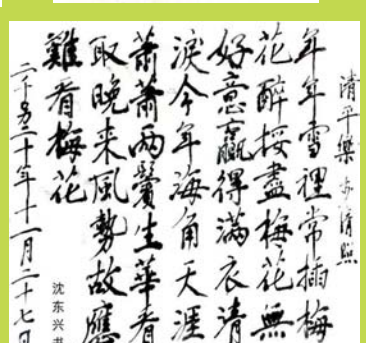 清平樂 李清照
年年雪裡常插梅
花醉挼盡梅花無
好意贏得滿衣清
淚今年海角天涯
蕭蕭兩鬢生華看
取晚来風勢故應
難看梅花
二千另二十年十一月二十七日
沈东兴书